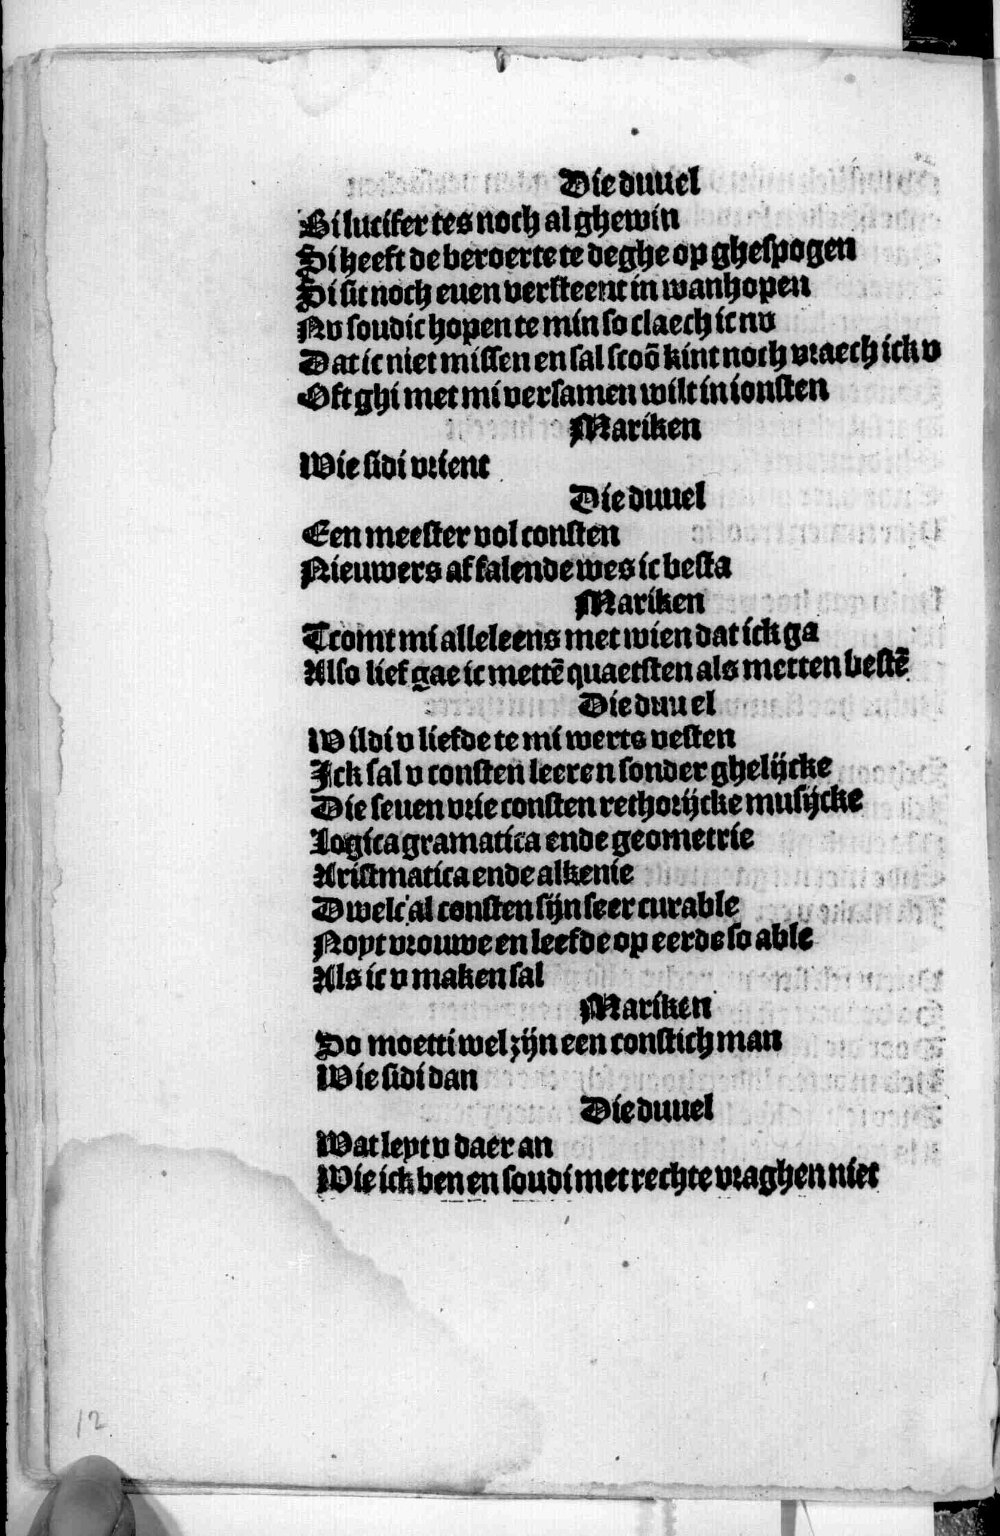 Die duuel
Bi lucifer tes noch al ghewin
Si heeft de beroerte te deghe op ghespogen
Si sit noch euen versteent in wanhopen
Nv soudic hopen te min so claech ic nv
Dat ic niet missen en sal scoō kint noch vraech ick v
Oft ghi met mi versamen wilt in ionsten
Mariken
Wie sidi vrient
Die duuel
Een meester vol consten
Nieuwers af falende wes ic besta
Mariken
Tcomt mi alleleens met wien dat ick ga
Also lief gae ic mettē quaetsten als metten bestē
Die duuel
Wildi v liefde te mi werts vesten
Ick sal v consten leeren sonder ghelijcke
Die seuen vrie consten rethorijcke musijcke
Logica gramatica ende geometrie
Aristmatica ende alkenie
Dwelc al consten sijn seer curable
Noyt vrouwe en leefde op eerde so able
Als ic v maken sal
Mariken
So moetti wel zijn een constich man
Wie sidi dan
Die duuel
Wat leyt v daer an
Wie ick ben en soudi met rechte vraghen niet
12